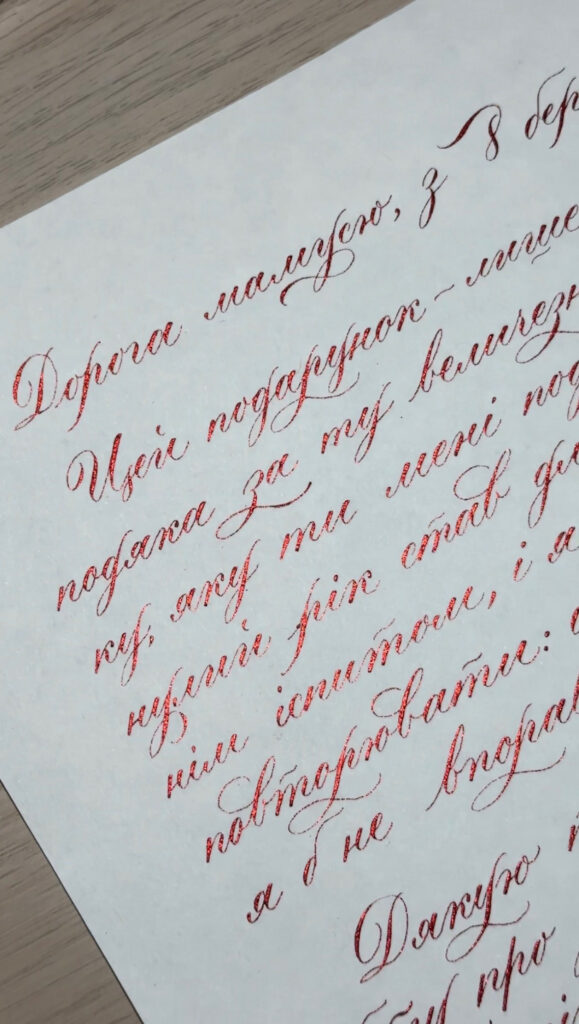 Дорога мамусю, з 8 бер
Цей подарунок - лише
подяка за ту величезн
ку, яку ти мені под
нулий рік став для
нім іспитом, і я
повторювати:
я б не впорав
Дякую
про